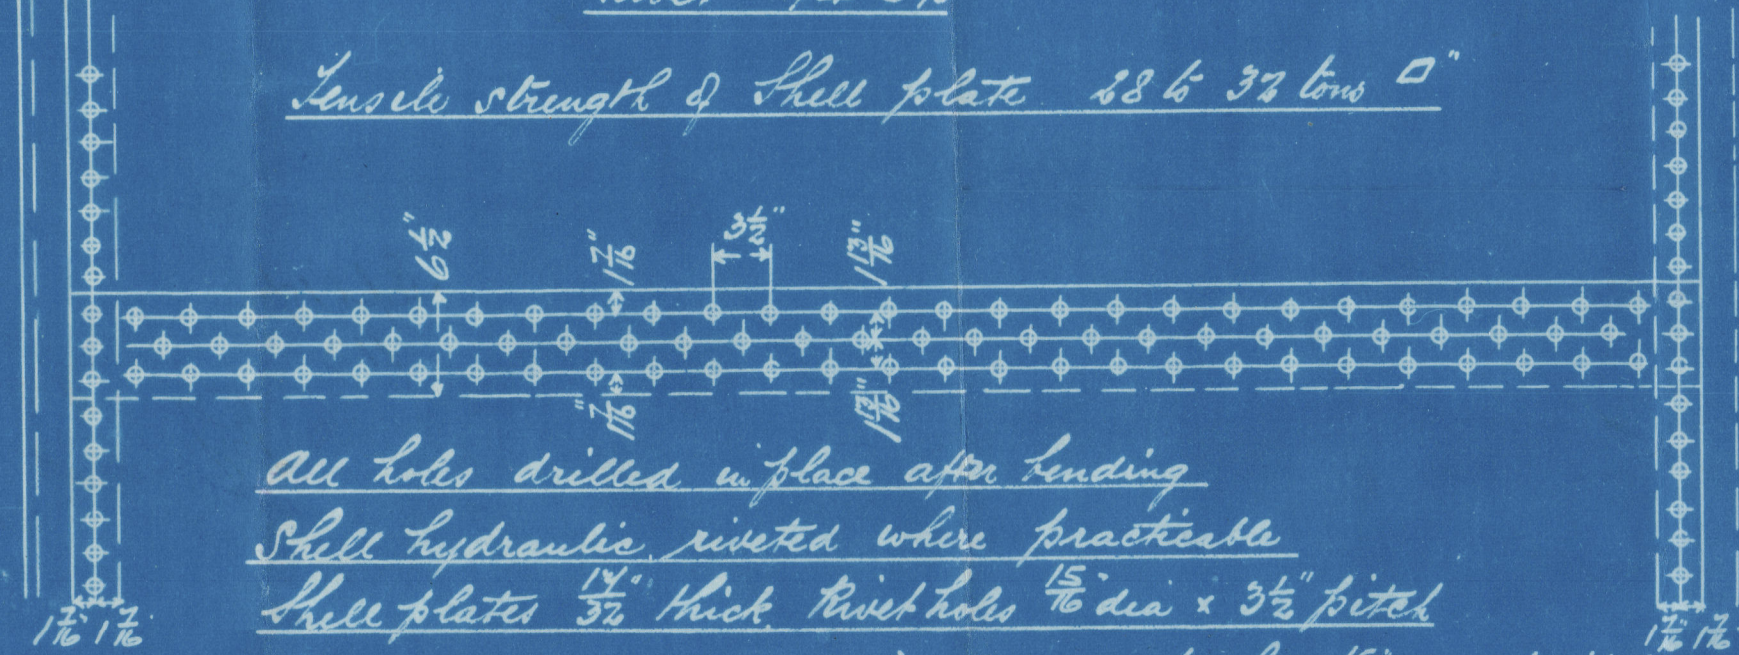 Tensile strength of Shell plate 28 to 32 tons □"
6 1/2"
1 7/16"
3 1/2"
1 13/16"
1 7/16"
1 13/16"
All holes drilled in place after bending
Shell hydraulic riveted where practicable
Shell plates 17/32" thick. Rivet holes 15/16" dia × 3 1/2" pitch
1 7/16" 1 7/16"
1 7/16" 1 7/16"